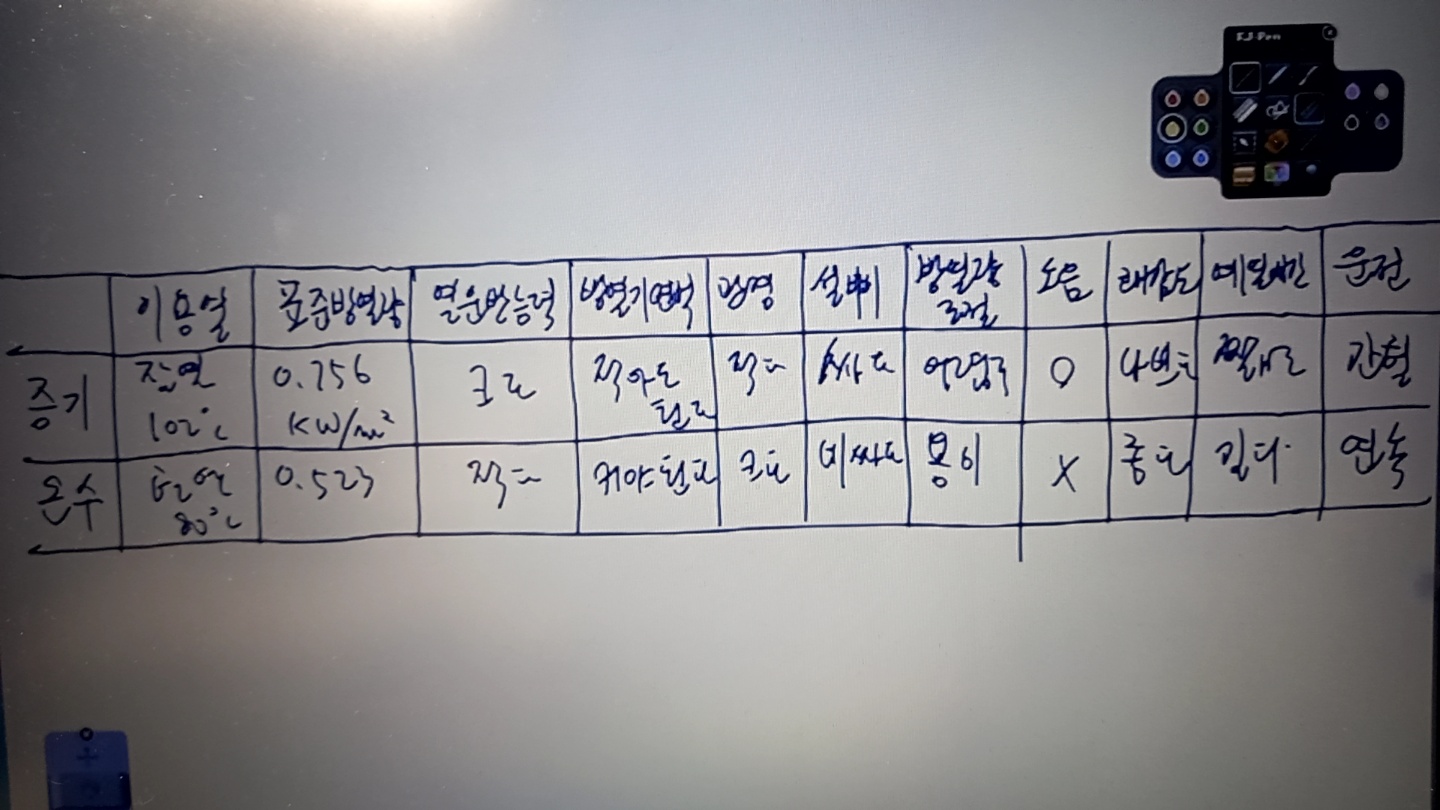 EJ Pen
이용열 표준방열량 열운반능력 방열기면적 관경 설비비 방열량 소음 쾌감도 예열시간 운전
조절
증기 잠열 0.756 크다 작아도 작다 싸다 어렵다 O 나쁘다 짧다 간헐
102℃ KW/m² 된다
온수 현열 0.523 작다 커야된다 크다 비싸다 용이 X 좋다 길다 연속
80℃